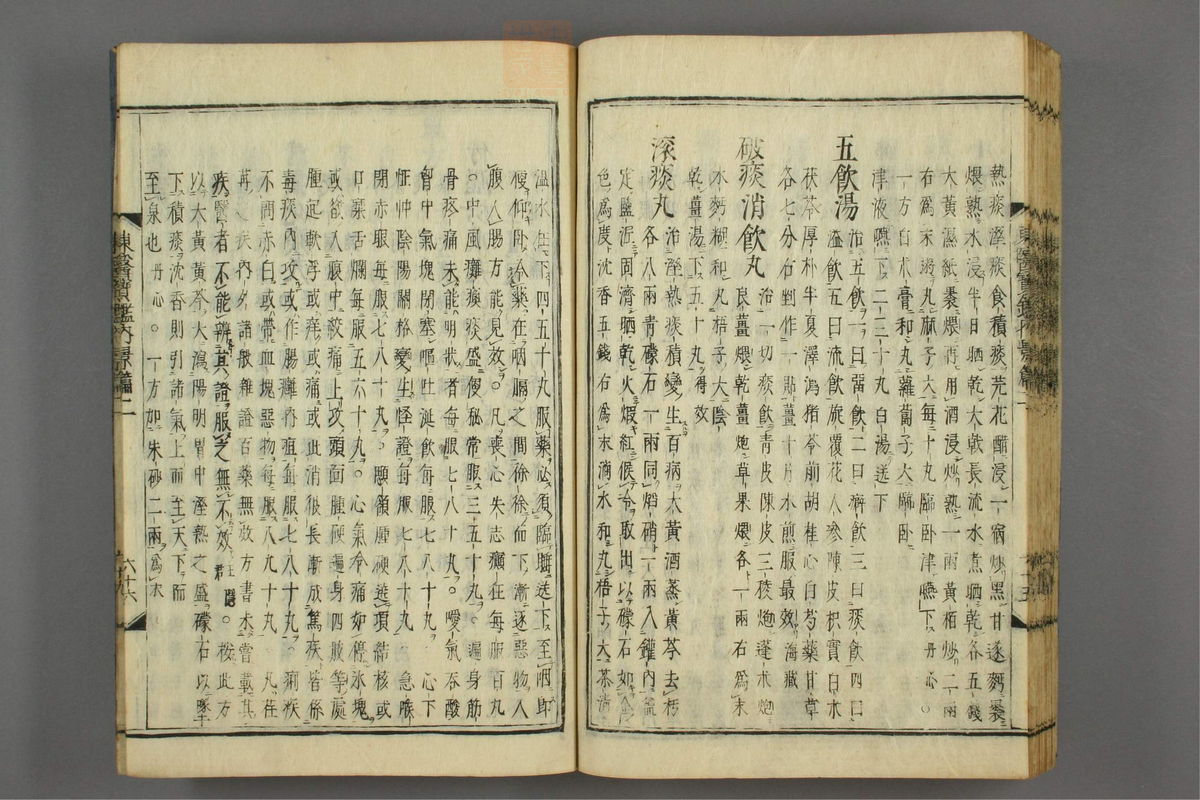 熱痰溼痰食積痰芫花醋浸一宿炒黑甘遂麪裹
煨熟水浸半日晒乾大戟長流水煮晒乾各五錢
大黃濕紙裹煨再用酒浸炒熟一兩黃栢炒二兩
右爲末粥丸麻子大每十丸臨卧津嚥下丹心○
一方白朮膏和丸蘿葍子大臨卧
津液嚥下二三十丸白湯送下
五飮湯 治五飮一曰畱飮二曰癖飮三曰痰飮四曰
溢飮五曰流飮旋覆花人參陳皮枳實白朮
茯苓厚朴半夏澤瀉猪苓前胡桂心白芍藥甘草
各七分右剉作一貼薑十片水煎服最效海藏
破痰消飮丸 治一切痰飮青皮陳皮三稜炮蓬朮炮
良薑煨乾薑炮草果煨各一兩右爲末
水麪糊和丸梧子大陰
乾薑湯下五十丸得效
滚痰丸 治溼熱痰積變生百病大黃酒蒸黃芩去朽
各八兩青礞石一兩同焰硝一兩入鑵內盖
定鹽泥固濟晒乾火煆紅候冷取出以礞石如金
色爲度沈香五錢右爲末滴水和丸梧子大茶清
溫水任下四五十丸服藥必須臨睡送下至咽卽
便仰卧令藥在咽膈之間徐徐而下漸逐惡物入
腹入腸方能見效○凡喪心失志癲狂每服百丸
○中風癱瘓痰盛便秘常服三五十丸○遍身筋
骨疼痛未能明狀者每服七八十丸○噯氣吞酸
智中氣塊閉塞嘔吐涎飮每服七八十丸○心下
怔忡陰陽關格變生怪證每服七八十丸○急喉
閉赤眼每服七八十丸○顋頷腫硬遶項結核或
口糜舌爛每服五六十丸○心氣冷痛如停氷塊
或欲入腹中絞痛上攻頭面腫硬遍身四肢等處
腫起軟浮或痒或痛或此消彼長漸成篤疾皆係
毒痰內攻或作腸癰㾂疽每服七八十丸○痢疾
不問赤白或帶血塊惡物每服八九十丸○荏
苒之疾內外諸般雜證百藥無效方書未嘗載其
疾醫者不能辨其證服之無不效王隱君○按此方
以大黃黃芩大瀉陽明胃中溼熱之盛礞石以隊于
下積痰沈香則引諸氣上而至天下而
至泉也丹心○一方加朱砂二兩爲衣
東醫寶鑑內景篇二
六十六